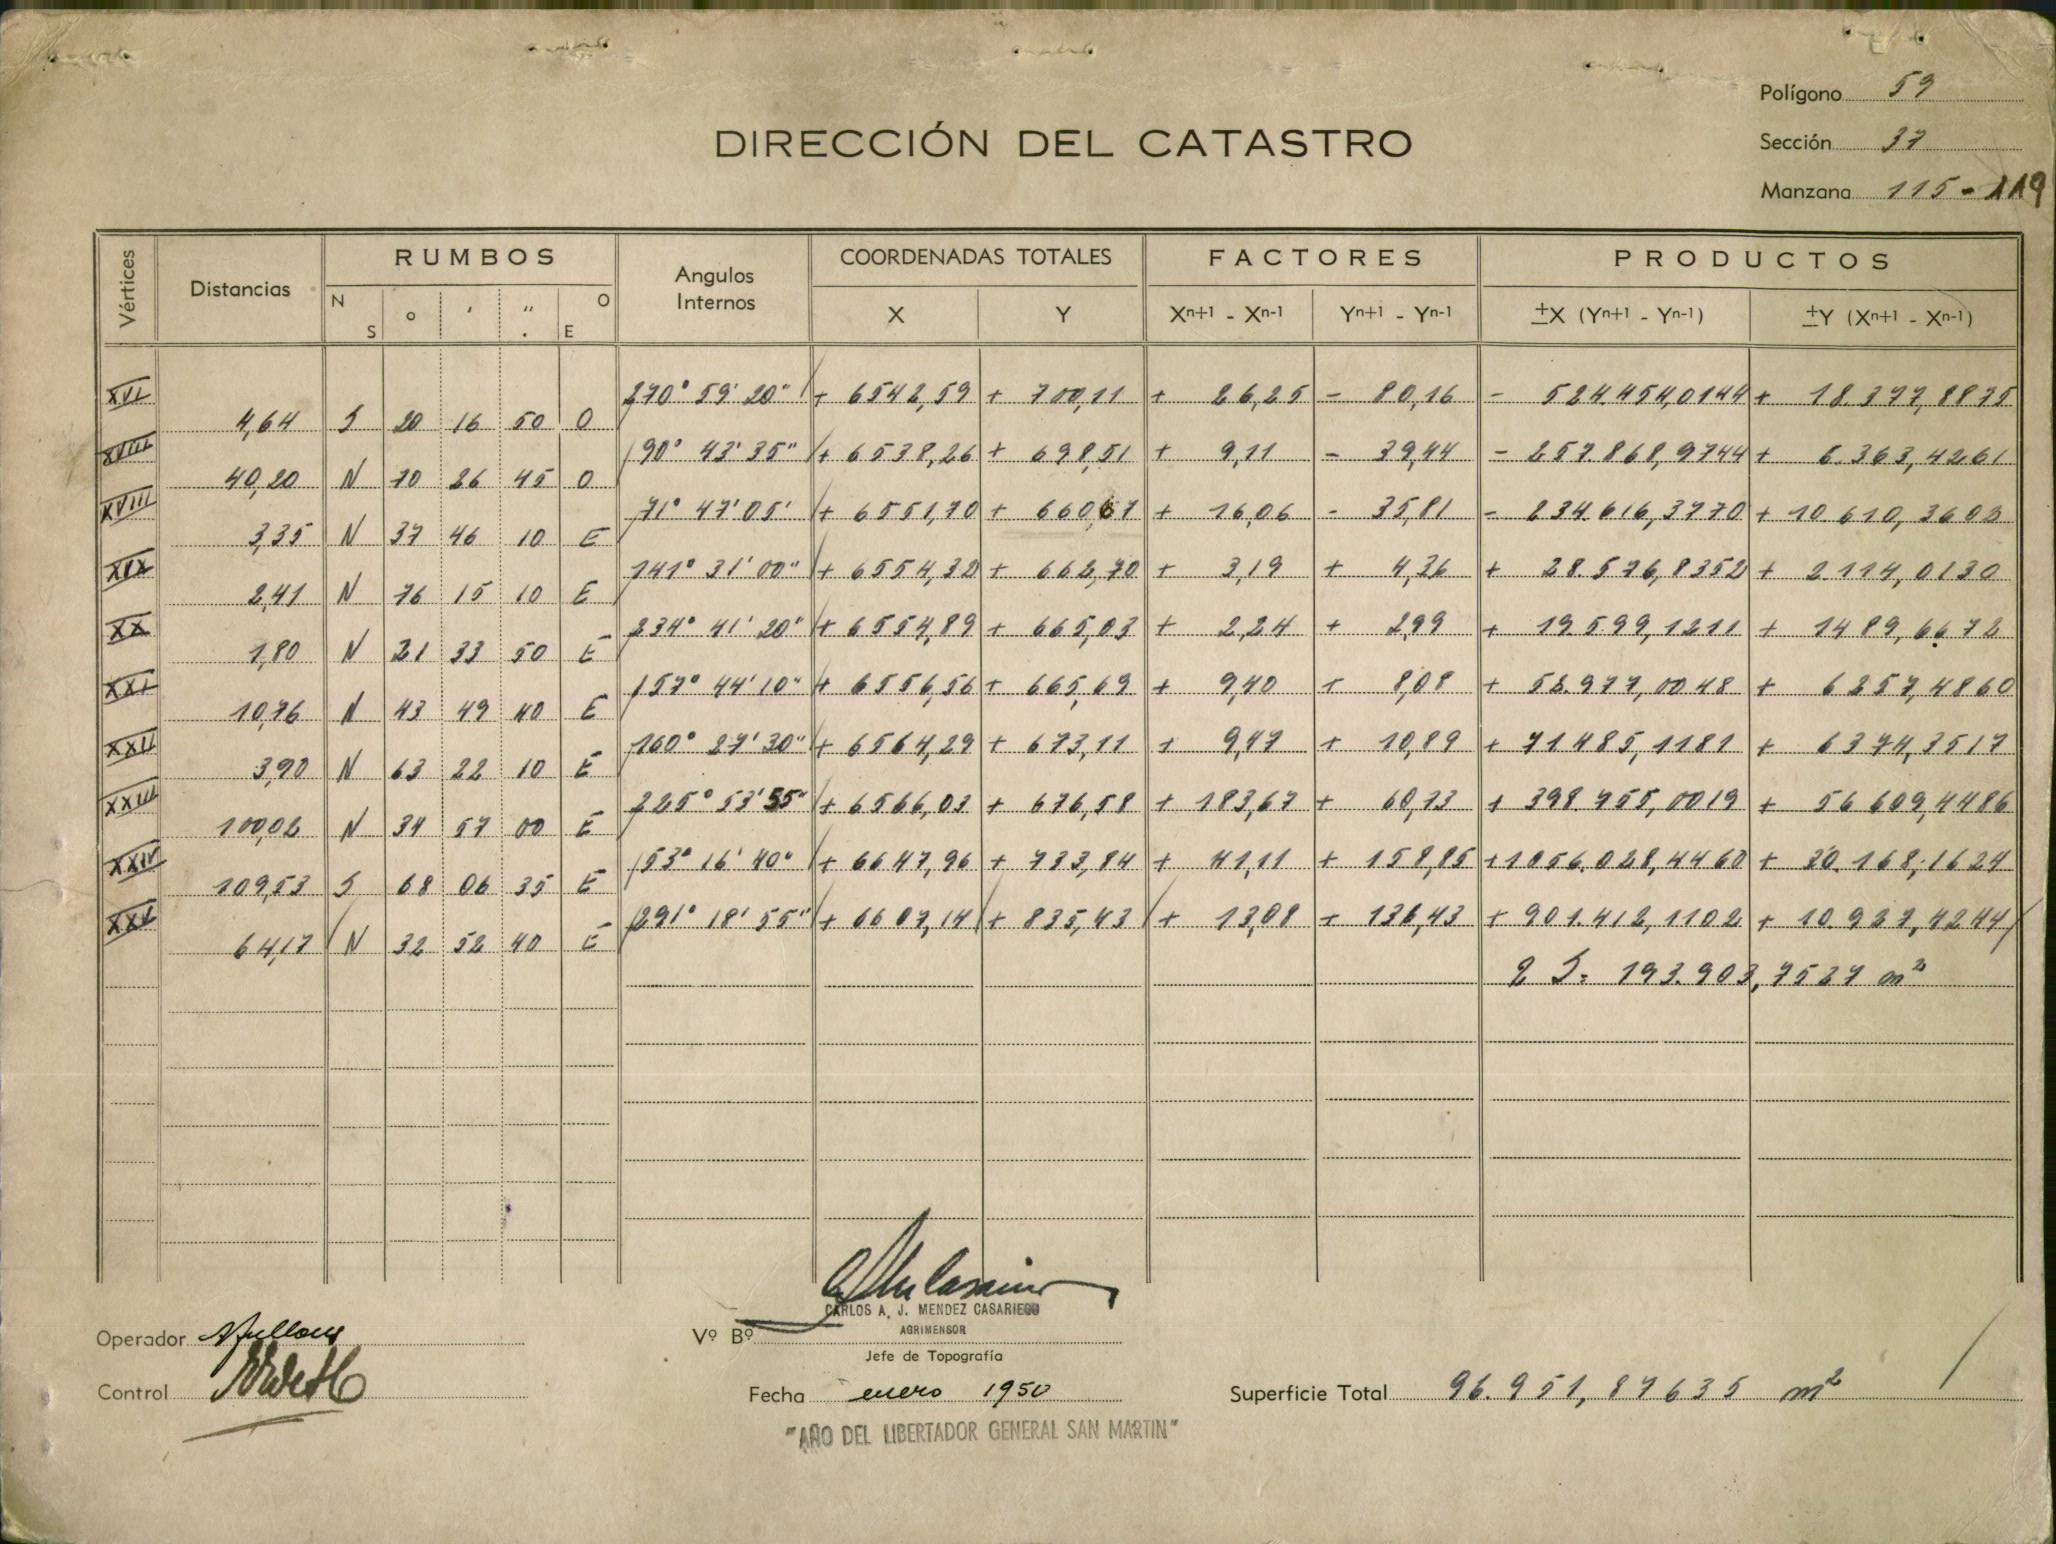 Polígono 59
DIRECCIÓN DEL CATASTRO
Sección 37
Manzana 115 - 119
Vértices Distancias RUMBOS Angulos Internos COORDENADAS TOTALES FACTORES PRODUCTOS
N S ° ' " . O E X Y Xn+1 - Xn-1 Yn+1 - Yn-1 ±X (Yn+1 - Yn-1) ±Y (Xn+1 - Xn-1)
XVI 270° 59' 20" + 6542,59 + 700,11 + 26,25 - 80,16 - 524.454,0144 + 18.377,8875
4,64 S 20 16 50 O
XVII 90° 43' 35" + 6538,26 + 698,51 + 9,11 - 39,44 - 257.868,9744 + 6.363,4261
40,20 N 70 26 45 O
XVIII 71° 47' 05' + 6551,70 + 660,67 + 16,06 - 35,81 - 234.616,3770 + 10.610,3602
3,35 N 37 46 10 E
XIX 141° 31' 00" + 6554,32 + 662,70 + 3,19 + 4,36 + 28.576,8352 + 2.114,0130
2,41 N 76 15 10 E
XX 234° 41' 20" + 6554,89 + 665,03 + 2,24 + 2,99 + 19.599,1211 + 1489,6672
1,80 N 21 33 50 E
XXI 157° 44' 10" + 6556,56 + 665,69 + 9,40 + 8,08 + 52.977,0048 + 6257,4860
10,76 N 43 49 40 E
XXII 160° 27' 30" + 6564,29 + 673,11 + 9,47 + 10,89 + 71485,1181 + 6374,3517
3,90 N 63 22 10 E
XXIII 225° 53' 55" + 6566,03 + 676,58 + 183,67 + 60,73 + 398.755,0019 + 56609,4486
100,02 N 34 57 00 E
XXIV 53° 16' 40" + 6647,96 + 733,84 + 41,11 + 158,85 + 1056.028,4460 + 30.168,1624
109,53 S 68 06 35 E
XXV 291° 18' 55" + 6607,14 + 835,43 + 13,08 + 136,43 + 901.412,1102 + 10.927,4244
64,17 N 32 52 40 E
2 S = 193.903,7527 m²
CARLOS A. J. MENDEZ CASARIEGO
AGRIMENSOR
Operador Vº Bº
Jefe de Topografía
Control Fecha enero 1950 Superficie Total 96.951,87635 m²
"AÑO DEL LIBERTADOR GENERAL SAN MARTIN"